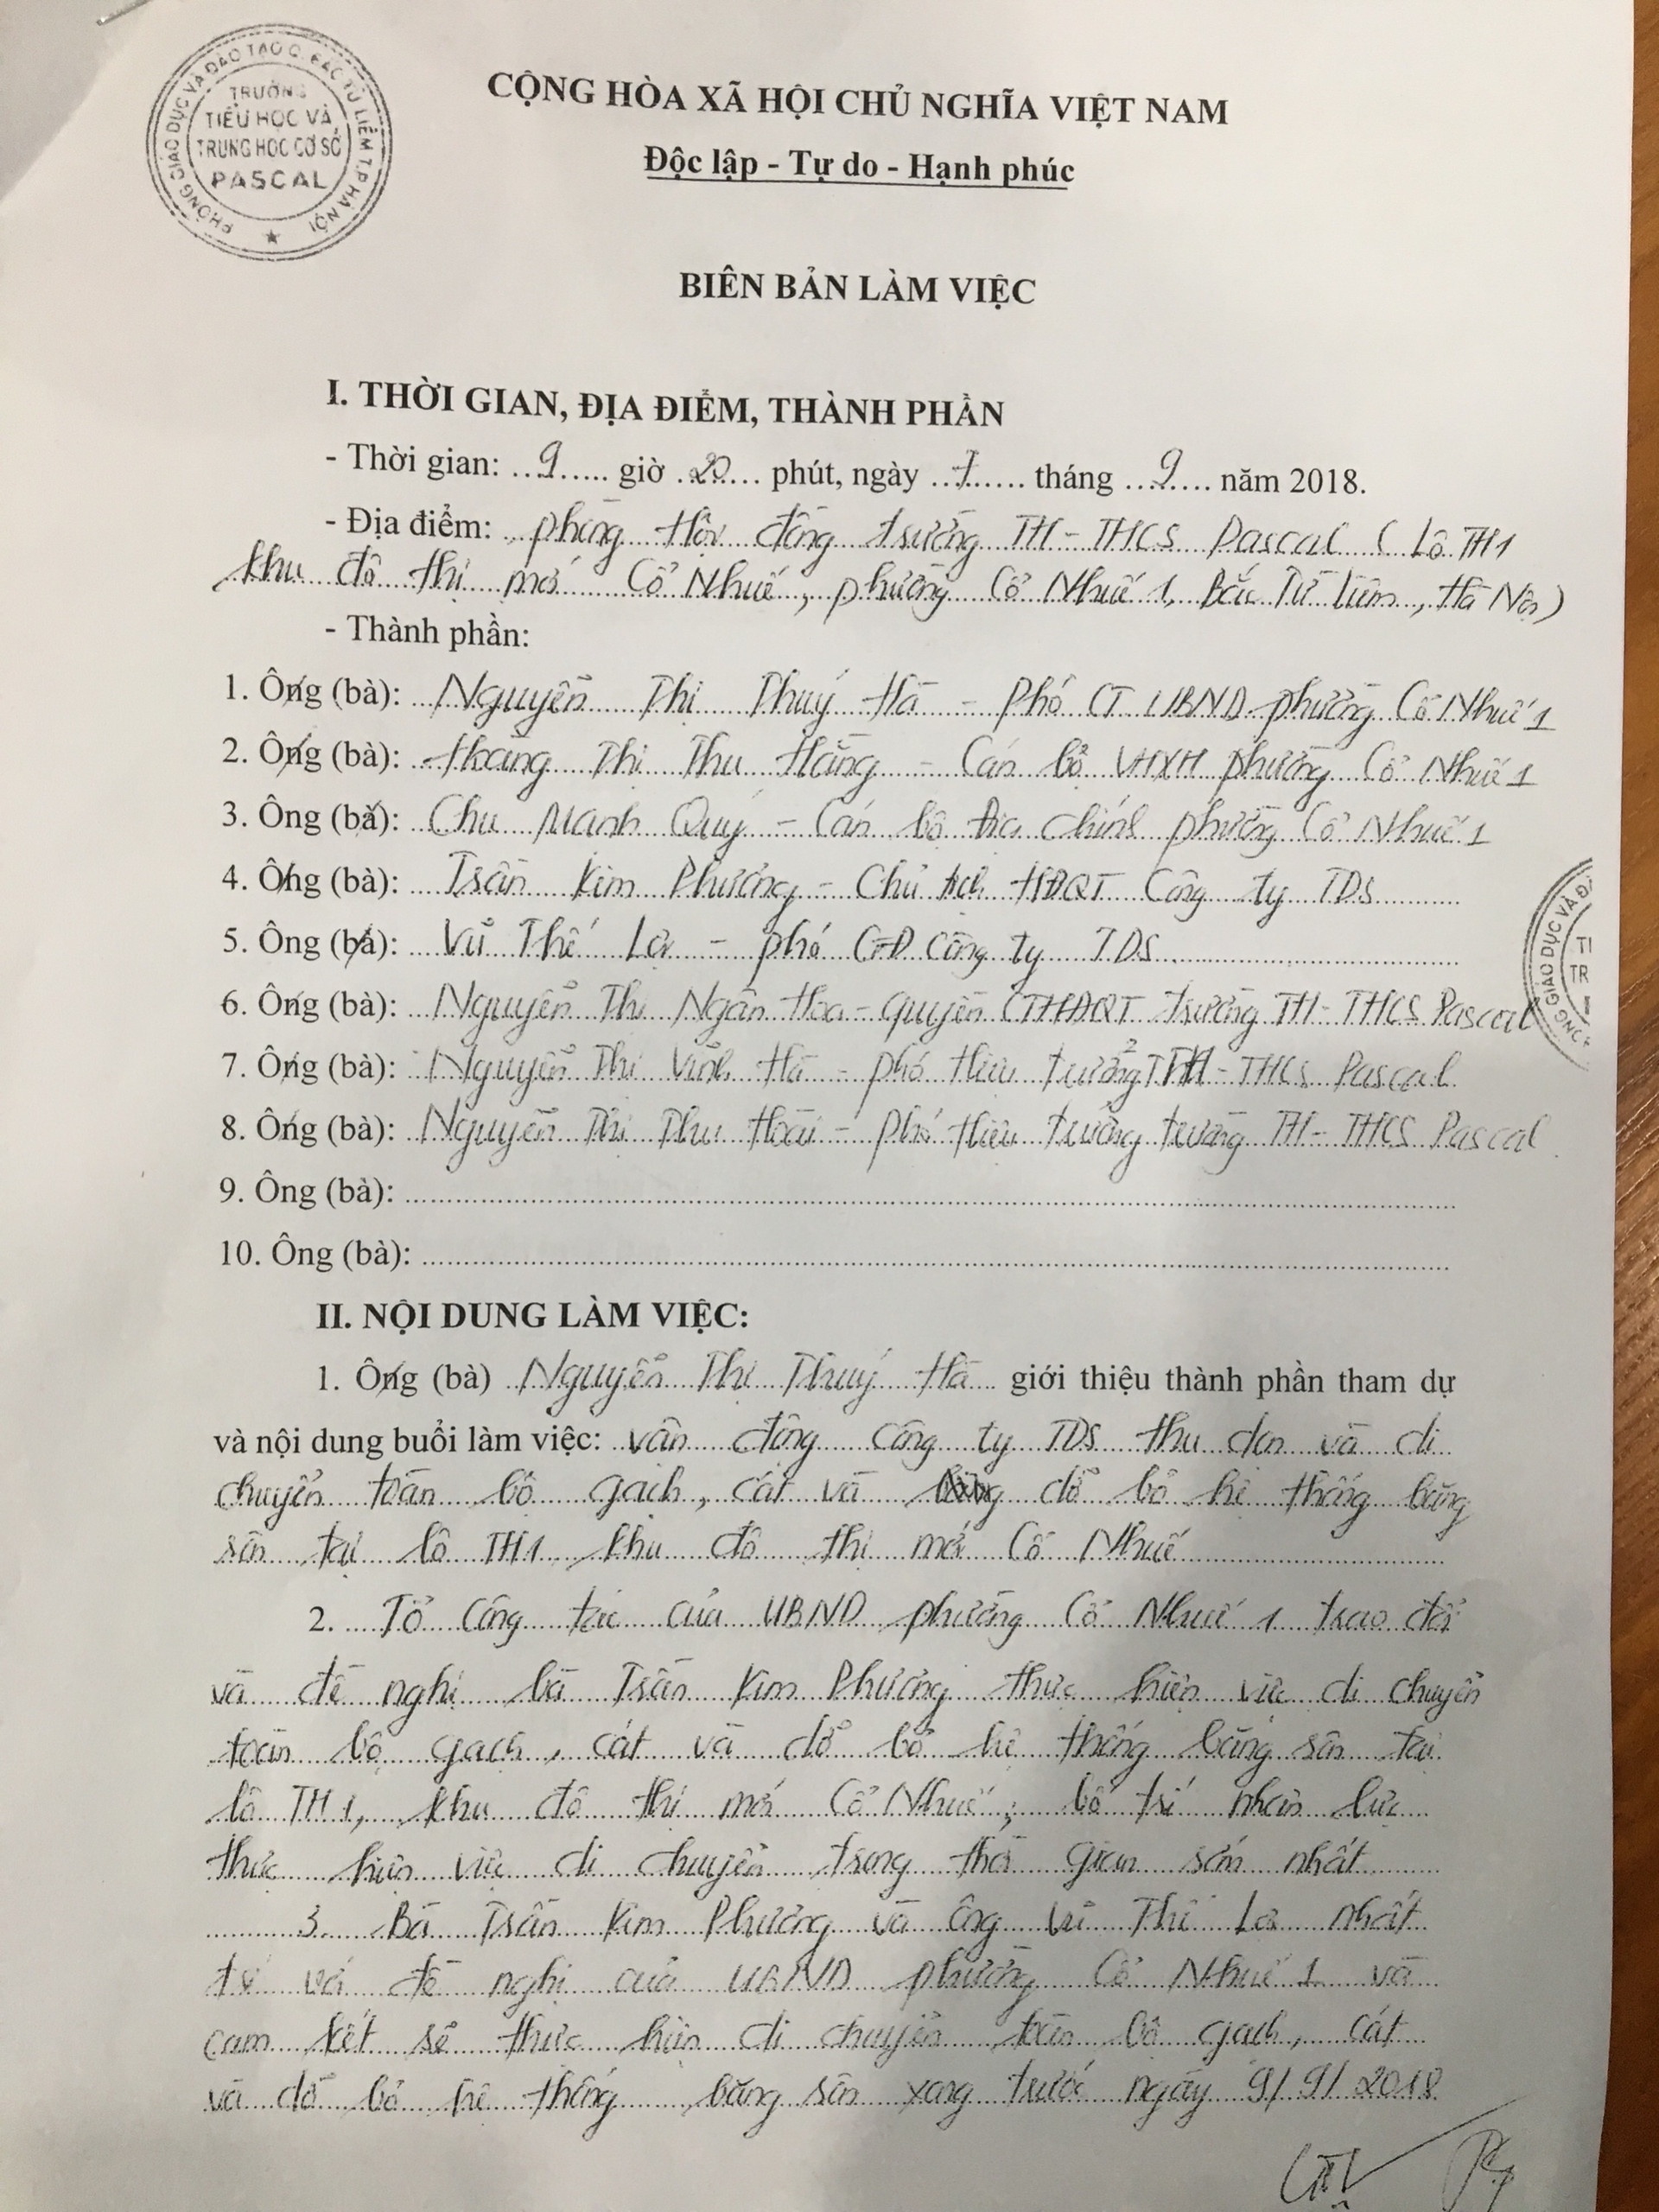 PHÒNG GIÁO DỤC VÀ ĐÀO TẠO Q. BẮC TỪ LIÊM T.P HÀ NỘI
TRƯỜNG
TIỂU HỌC VÀ
TRUNG HỌC CƠ SỞ
PASCAL
CỘNG HÒA XÃ HỘI CHỦ NGHĨA VIỆT NAM
Độc lập - Tự do - Hạnh phúc
BIÊN BẢN LÀM VIỆC
I. THỜI GIAN, ĐỊA ĐIỂM, THÀNH PHẦN
- Thời gian: 9 giờ 20 phút, ngày 7 tháng 9 năm 2018.
- Địa điểm: phòng Hội đồng trường TH-THCS Pascal ( Lô TH1
khu đô thị mới Cổ Nhuế, phường Cổ Nhuế 1, Bắc Từ Liêm, Hà Nội)
- Thành phần:
1. Ông (bà): Nguyễn Thị Thuý Hà - Phó CT UBND phường Cổ Nhuế 1
2. Ông (bà): Hoàng Thị Thu Hằng - Cán bộ VHXH phường Cổ Nhuế 1
3. Ông (bà): Chu Mạnh Quý - Cán bộ Địa chính phường Cổ Nhuế 1
4. Ông (bà): Trần Kim Phương - Chủ tịch HĐQT Công ty TDS
5. Ông (bà): Vũ Thế Lợi - phó GĐ Công ty TDS
6. Ông (bà): Nguyễn Thị Ngân Hoa - quyền CTHĐQT trường TH-THCS Pascal
7. Ông (bà): Nguyễn Thị Vinh Hà - phó Hiệu trưởng TTH-THCS Pascal
8. Ông (bà): Nguyễn Thị Thu Hoài - phó Hiệu trưởng trường TH-THCS Pascal
9. Ông (bà):
10. Ông (bà):
GIÁO DỤC VÀ
II. NỘI DUNG LÀM VIỆC:
1. Ông (bà) Nguyễn Thị Thuý Hà giới thiệu thành phần tham dự
và nội dung buổi làm việc: vận động Công ty TDS thu dọn và di
chuyển toàn bộ gạch, cát và dỡ bỏ hệ thống băng
sân tại lô TH1, khu đô thị mới Cổ Nhuế
2. Tổ công tác của UBND phường Cổ Nhuế 1 trao đổi
và đề nghị bà Trần Kim Phương thực hiện việc di chuyển
toàn bộ gạch, cát và dỡ bỏ hệ thống băng sân tại
lô TH1, khu đô thị mới Cổ Nhuế; bố trí nhân lực
thực hiện việc di chuyển trong thời gian sớm nhất
3. Bà Trần Kim Phương và ông Vũ Thế Lợi nhất
trí với đề nghị của UBND phường Cổ Nhuế 1 và
cam kết sẽ thực hiện di chuyển toàn bộ gạch, cát
và dỡ bỏ hệ thống băng sân xong trước ngày 9/9/2018